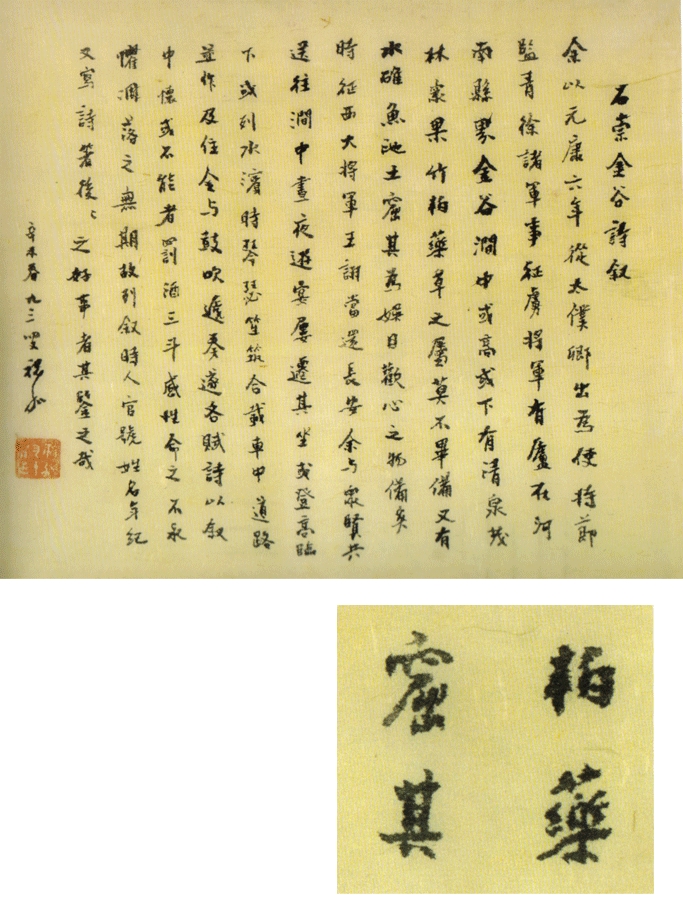 石崇金谷詩叙
余以元康六年從太僕卿出為使持節
監青徐諸軍事征虜將軍有廬在河
南縣界金谷澗中或高或下有清泉茂
林衆果竹柏藥草之屬莫不畢備又有
水碓魚池土窟其為娛目歡心之物備矣
時征西大將軍王詡當還長安余与衆賢共
送往澗中晝夜遊宴屢遷其坐或登高臨
下或列水濱時琴瑟笙筑合載車中道路
並作及住令与鼓吹遞奏遂各賦詩以叙
中懷或不能者罰酒三斗感性命之不永
懼凋落之無期故列叙時人官號姓名年紀
又寫詩箸後〻之好事者其覽之哉
辛未春九三叟
柏藥
窟其